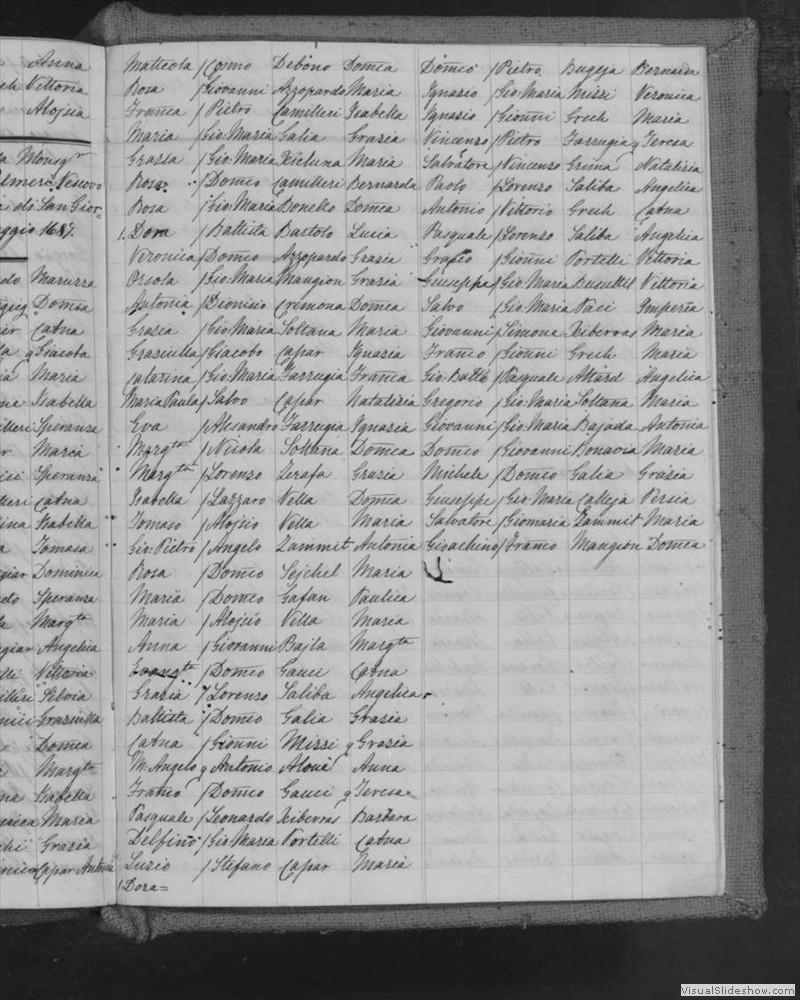 Anna
Vittoria
Aloisia
Monsgr
Vescovo
di San Gior=
aggio 1687.
do Maruzza
Domca
Catna
q Giacoba
Maria
Isabella
Speranza
Maria
Speranza
Catna
Isabella
Tomasa
Dominica
Speranza
Margta
Angelica
Vittoria
Silvia
Grasiulla
Domca
Margta
Isabella
Maria
Grazia
Capar Antonia
Matteola / Cosmo Debono Domca
Rosa / Giovanni Azzopardo Maria
Franca / Pietro Camilleri Isabella
Maria / Gio: Maria Galia Grazia
Grassa / Gio: Maria Xicluna Maria
Rosa / Domco Camilleri Bernarda
Rosa / Gio: Maria Bonello Domca
1. Dora / Battista Bartolo Lucia
Veronica / Domco Azzopardo Grazia
Orsola / Gio: Maria Mangion Grazia
Antonia / Dionisio Cremona Domca
Grazia / Gio: Maria Soltana Maria
Grasiulla / Giacobo Capar Ignazia
Catarina / Gio: Maria Farrugia Franca
Maria Paula / Salvo Capar Natalizia
Eva / Alesandro Farrugia Ignazia
Margta / Nicola Soltana Domca
Margta / Lorenzo Zerafa Grazia
Isabella / Lazzaro Vella Domca
Tomaso / Aloisio Vella Maria
Gio: Pietro / Angelo Zammit Antonia
Rosa / Domco Sejchel Maria
Maria / Domco Gafan Paulica
Maria / Aloisio Vella Maria
Anna / Giovanni Bajla Margta
Evangta / Domco Gauci Catna
Grazia / Lorenzo Saliba Angelica
Battista / Domco Galia Grazia
Catna / Gionni Missi q Grazia
M. Angelo q Antonio Aloui Anna
Franco / Domco Gauci q Teresa
Pasquale / Leonardo Xiberras Barbara
Delfino / Gio: Maria Portelli Catna
Luzio / Stefano Capar Maria
1 Dora=
Domco / Pietro Bugeja Bernarda
Ignazio / Gio: Maria Missi Veronica
Ignazio / Gionni Grech Maria
Vincenzo / Pietro Farrugia q Teresa
Salvatore / Vincenzo Grima Natalizia
Paolo / Lorenzo Saliba Angelica
Antonio / Vittorio Grech Catna
Pasquale / Lorenzo Saliba Angelica
Grazio / Gionni Portelli Vittoria
Giuseppe / Gio: Maria Busuttil Vittoria
Salvo / Gio: Maria Paci Imperia
Giovanni / Simone Xiberras Maria
Franco / Gionni Grech Maria
Gio: Batta / Pasquale Attard Angelica
Gregorio / Gio: Maria Soltana Maria
Giovanni / Gio: Maria Bajada Antonia
Domco / Giovanni Bonavia Maria
Michele / Domco Galia Grazia
Giuseppe / Gio: Maria Calleja Persia
Salvatore / Giomaria Zammit Maria
Gioachino / Franco Mangion Domca
VisualSlideshow.com